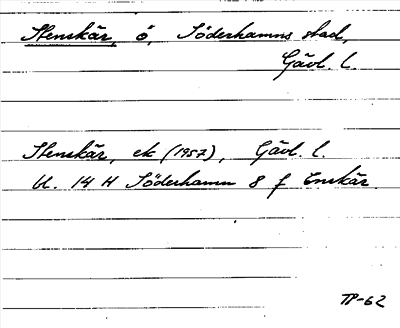 Stenskär, ö, Söderhamns stad,
Gävl. l.
Stenskär, ek (1957), Gävl. l.
bl. 14 H Söderhamn 8 f Enskär.
TP-62